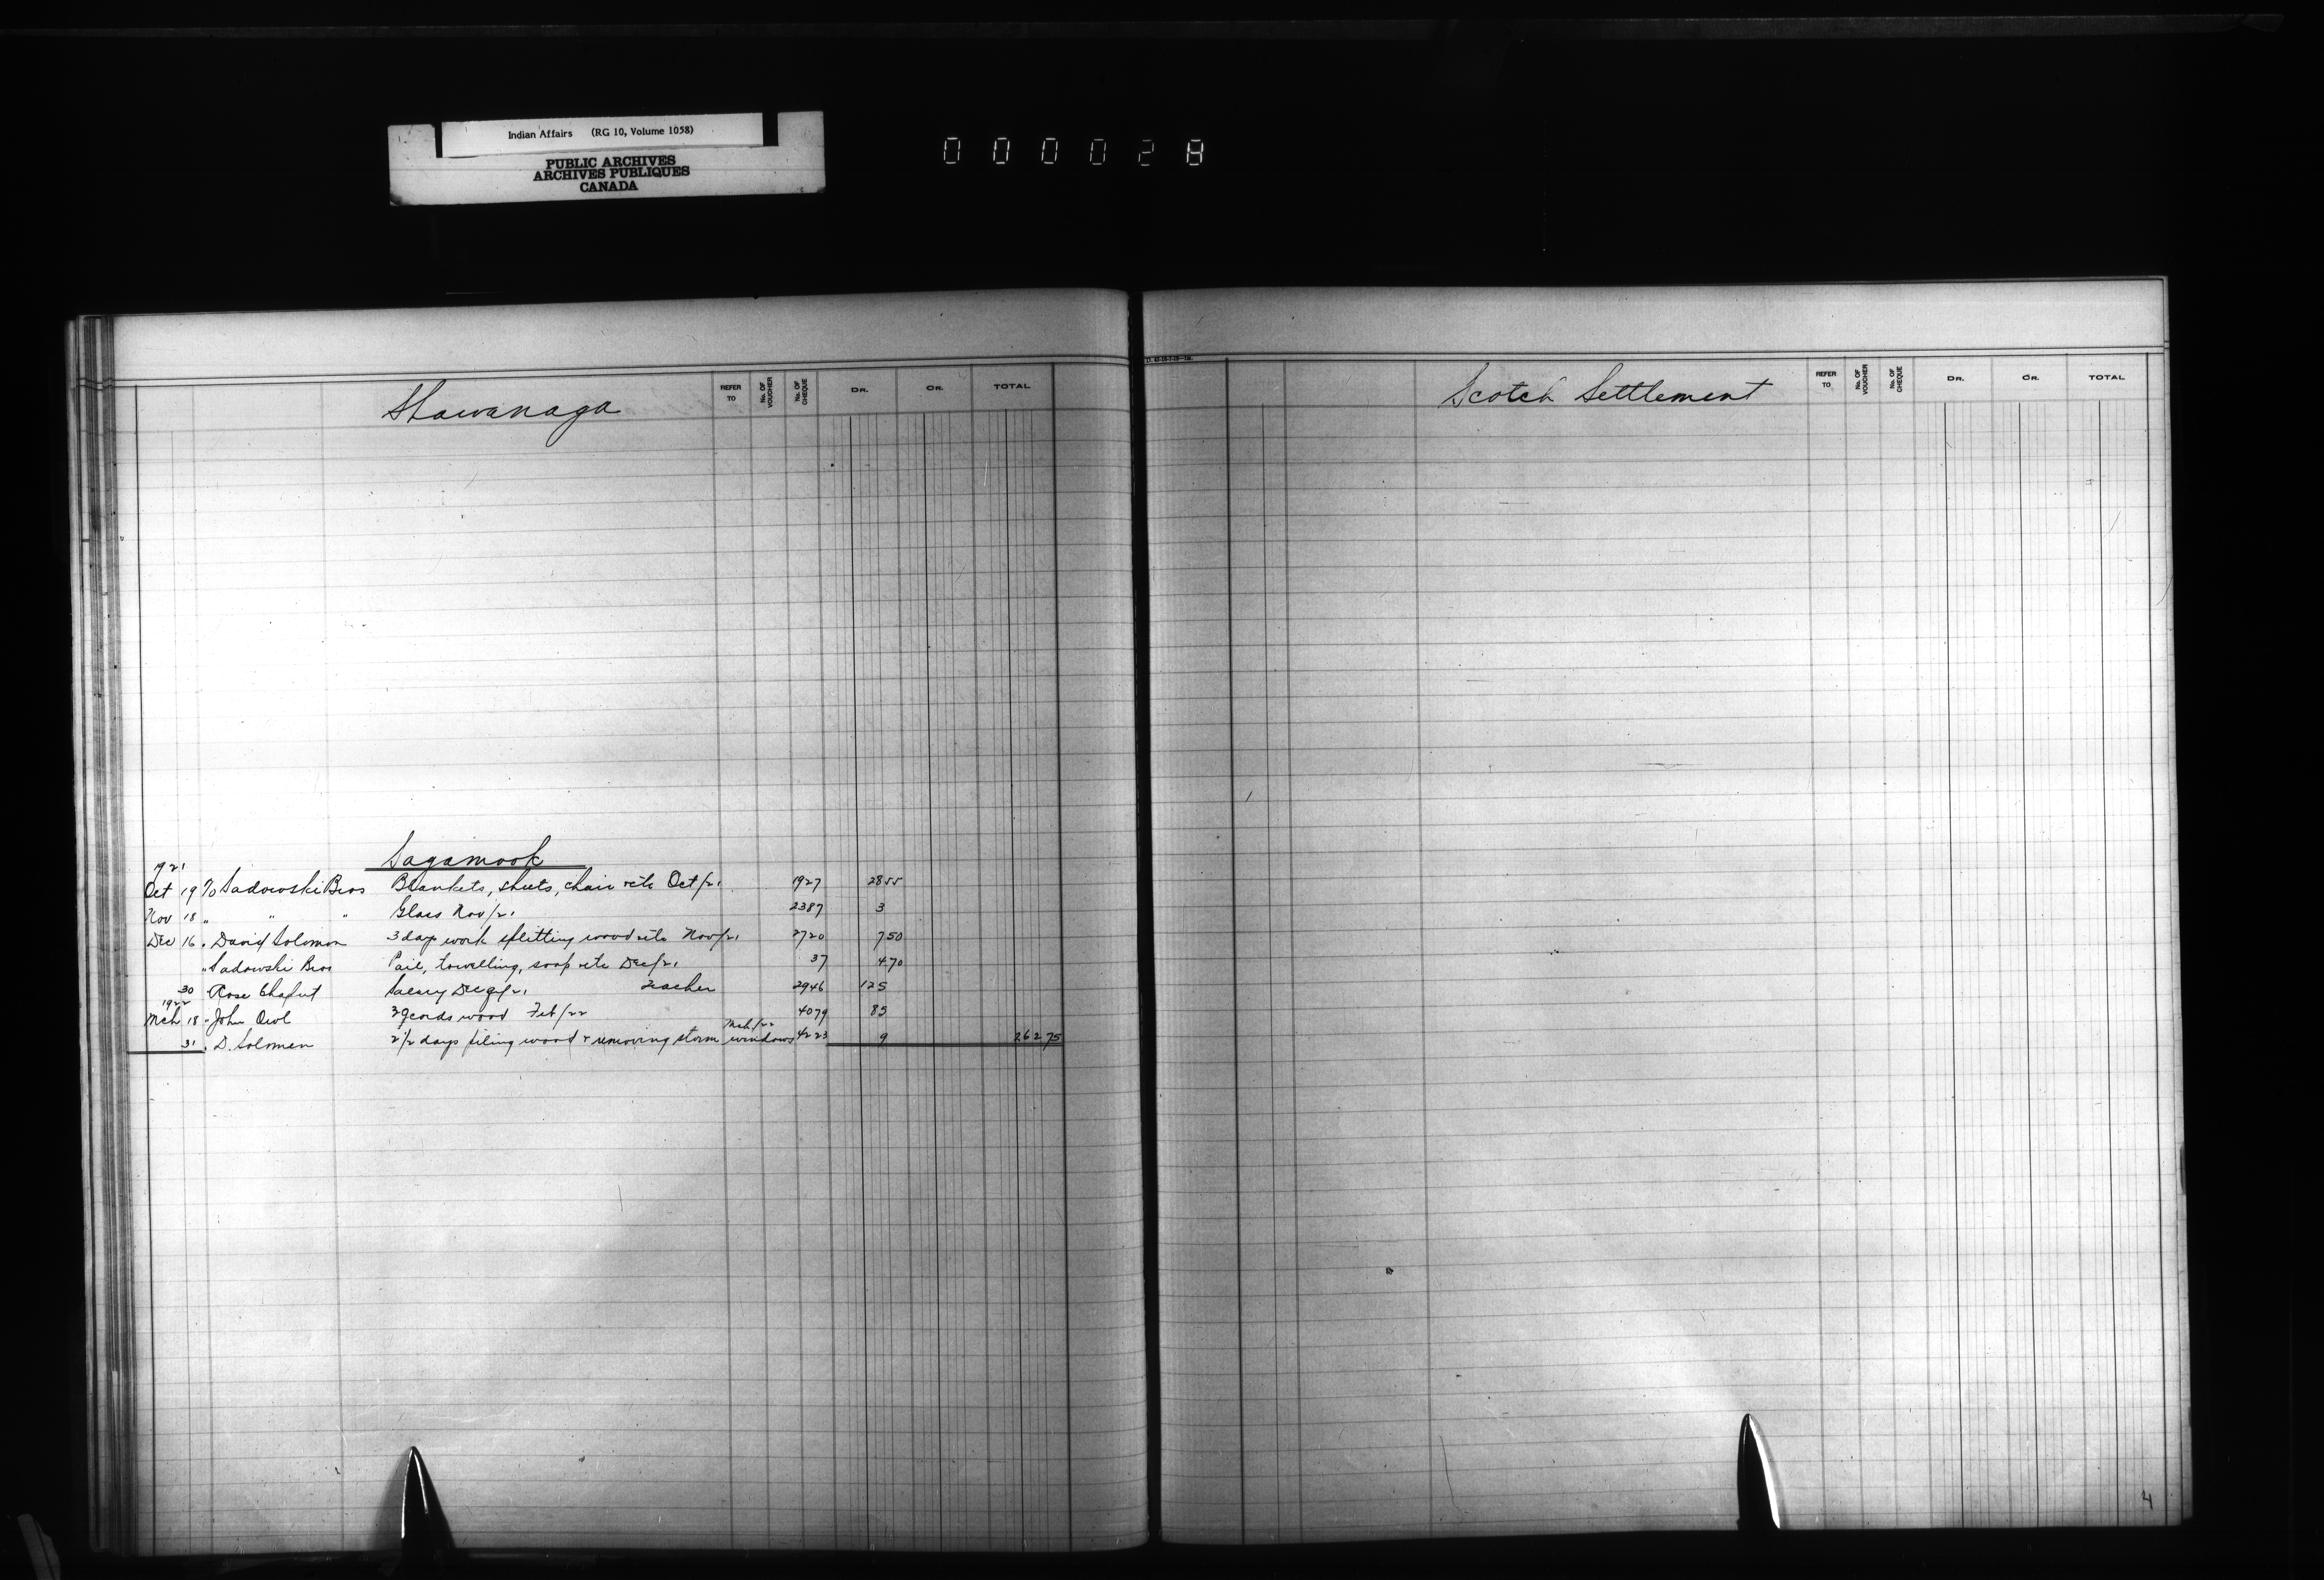 Indian Affairs (RG 10, Volume 1058)
PUBLIC ARCHIVES
ARCHIVES PUBLIQUES
CANADA
000028
Shawanaga REFER TO No. OF VOUCHER No. OF CHEQUE DR. CR. TOTAL
Sagamook
1921
Oct 19 To Sadowski Bros Blankets, sheets, chair etc Oct/21 1927 28 55
Nov 18 " " " Glass Nov/21 2387 3
Dec 16 " David Solomon 3 days work splitting wood etc Nov/21 2720 7 50
" Sadowski Bros Pail, towelling, soap etc Dec/21 37 4 70
30 " Rose Chaput Salary Dec /21 Teacher 2946 125
1922
Mch 18 " John Owl cords wood Feb/22 4079 85
Mch/22
31 " D. Solomon 2 1/2 days piling wood & removing storm windows 4223 9 262 75
Scotch Settlement REFER TO No. OF VOUCHER No. OF CHEQUE DR. CR. TOTAL
4